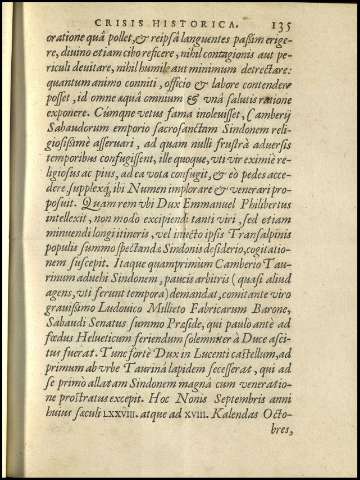 CRISIS HISTORICA. 135
oratione quâ pollet, & reipsâ languentes passim erige-
re, diuino etiam cibo reficere, nihil contagionis aut pe-
riculi deuitare, nihil humile aut minimum detrectare:
quantum animo conniti, officio & labore contendere
posset, id omne aquâ omnium & vnâ salutis ratione
exponere. Cùmque vetus fama inoleuisset, Camberij
Sabaudorum emporio sacrosanctam Sindonem reli-
giosissimè asseruari, ad quam nulli frustrà aduersis
temporibus confugissent, ille quoque, vti vir eximiè re-
ligiosus ac pius, ad ea vota confugit, & eò pedes acce-
dere supplexq́; ibi Numen implorare & venerari pro-
posuit. Quam rem vbi Dux Emmanuel Philibertus
intellexit, non modo excipiendi tanti viri, sed etiam
minuendi longi itineris, vel inuicto ipsis Transalpinis
populis summo spectandæ Sindonis desiderio, cogitatio-
nem suscepit. Itaque quamprimum Camberio Tau-
rinum aduehi Sindonem, paucis arbitris (quasi aliud
agens, vti ferunt tempora) demandat, comitante viro
grauissimo Ludouico Millieto Fabricarum Barone,
Sabaudi Senatus summo Præside, qui paulo antè ad
fœdus Helueticum feriendum solemniter à Duce asci-
tus fuerat. Tunc fortè Dux in Lucenti castellum, ad
primum ab vrbe Taurinâ lapidem secesserat, qui ad
se primò allatam Sindonem magna cum veneratio-
ne prostratus excepit. Hoc Nonis Septembris anni
huius sæculi LXXVIII. atque ad XVIII. Kalendas Octo-
bres,